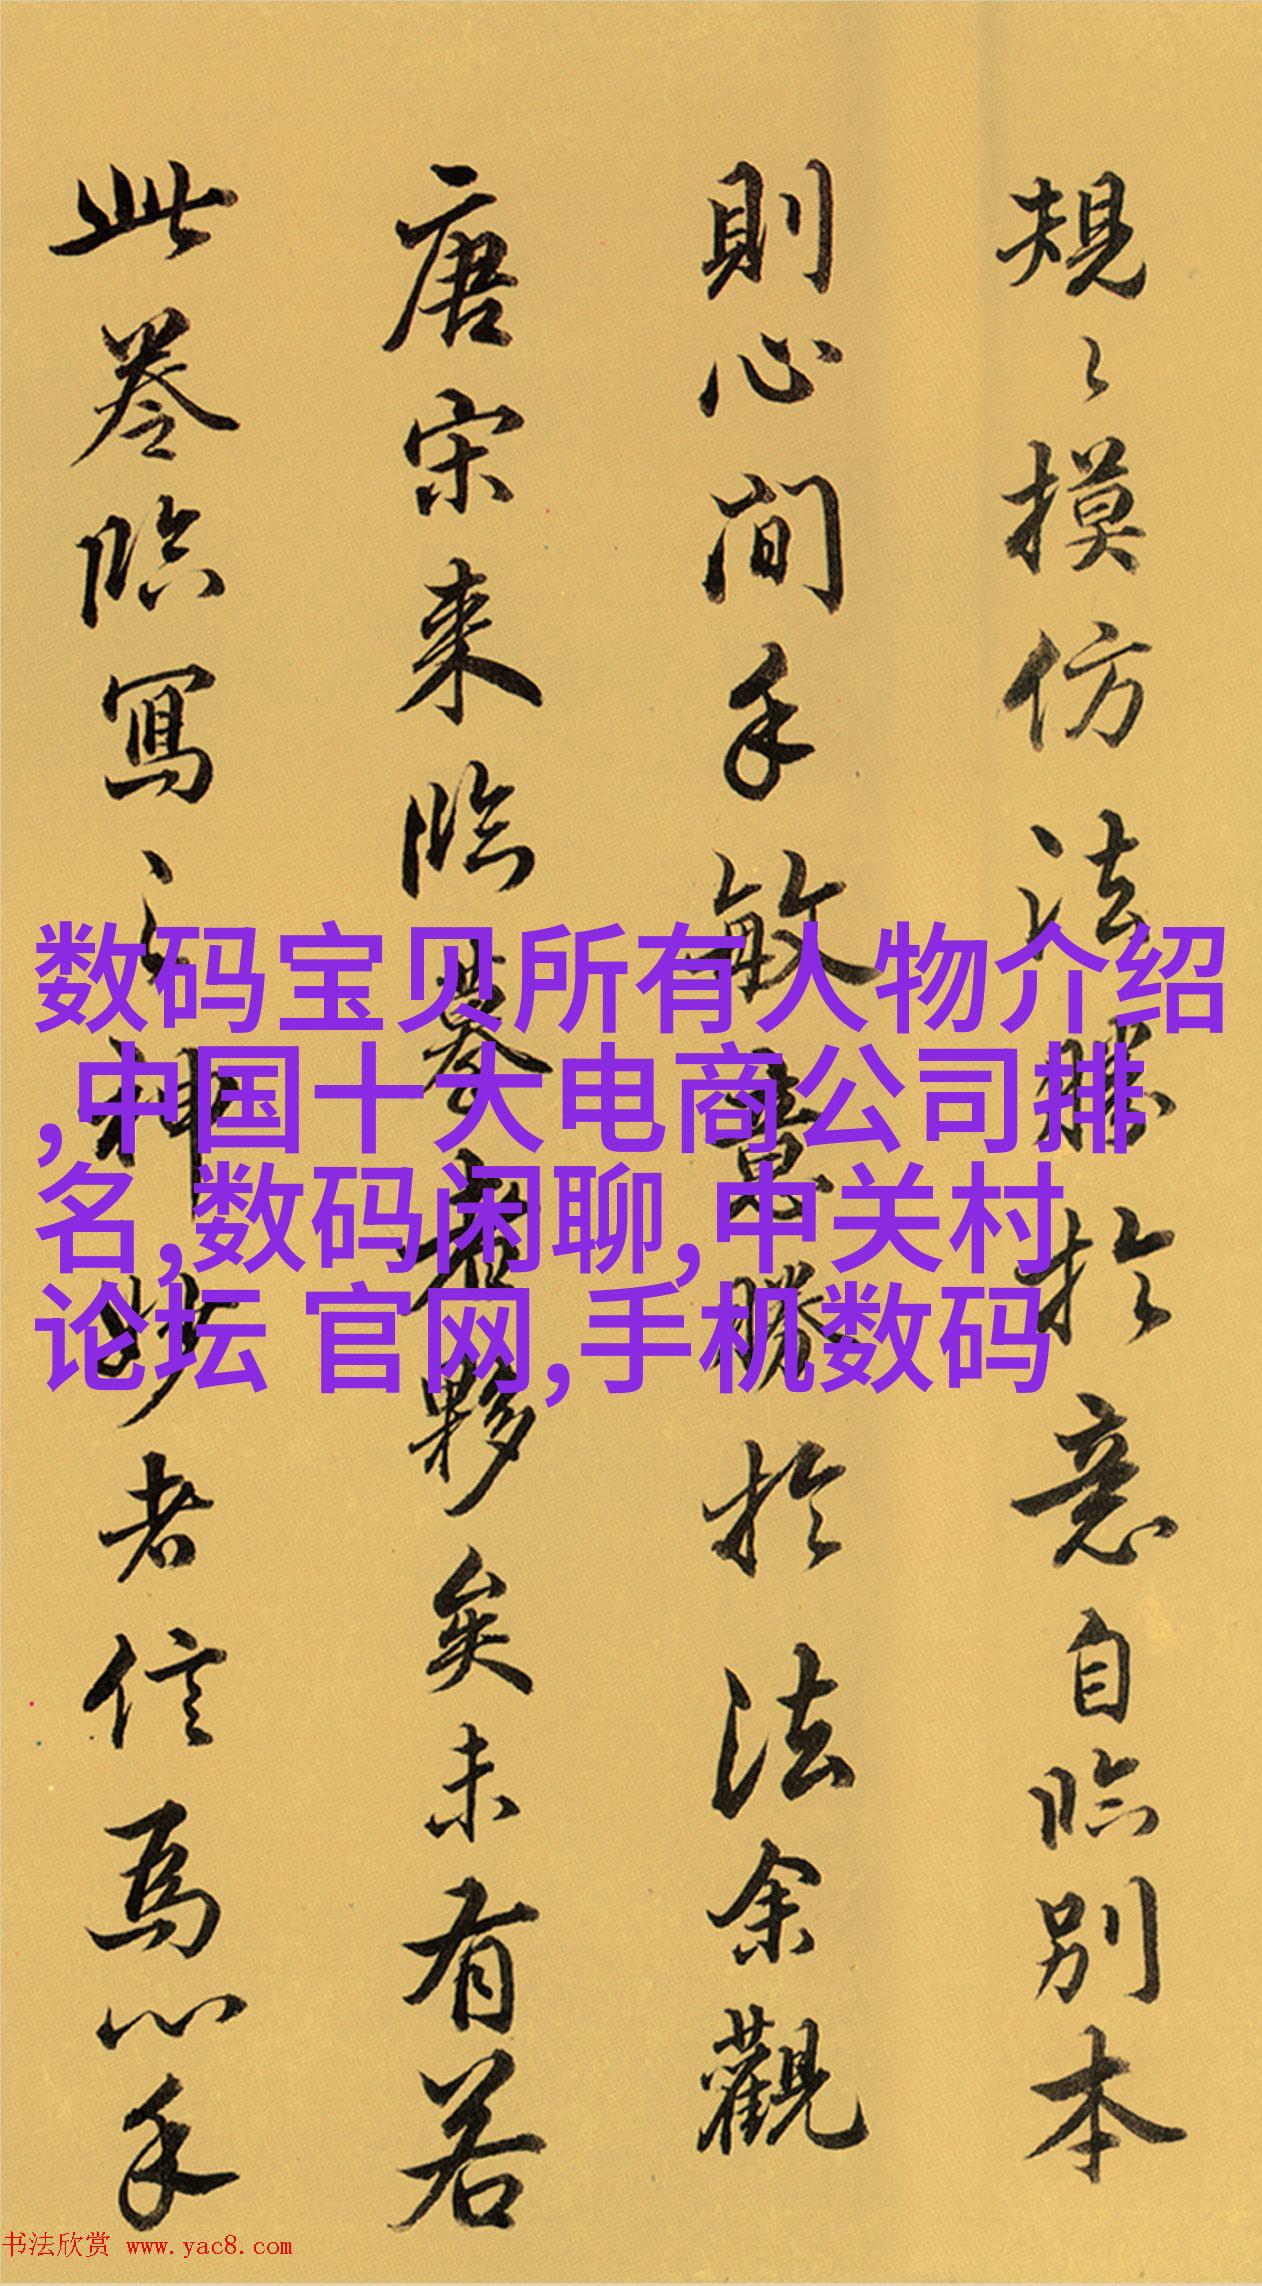 規〻摸仿法勝於意自臨別本
則心間手敏意勝於法余觀
唐宋来臨摹者夥矣未有若
此卷臨寫之神妙者信為心手
数码宝贝所有人物介绍
,中国十大电商公司排
名,数码闲聊,中关村
论坛 官网,手机数码
书法欣赏 www.yac8.com